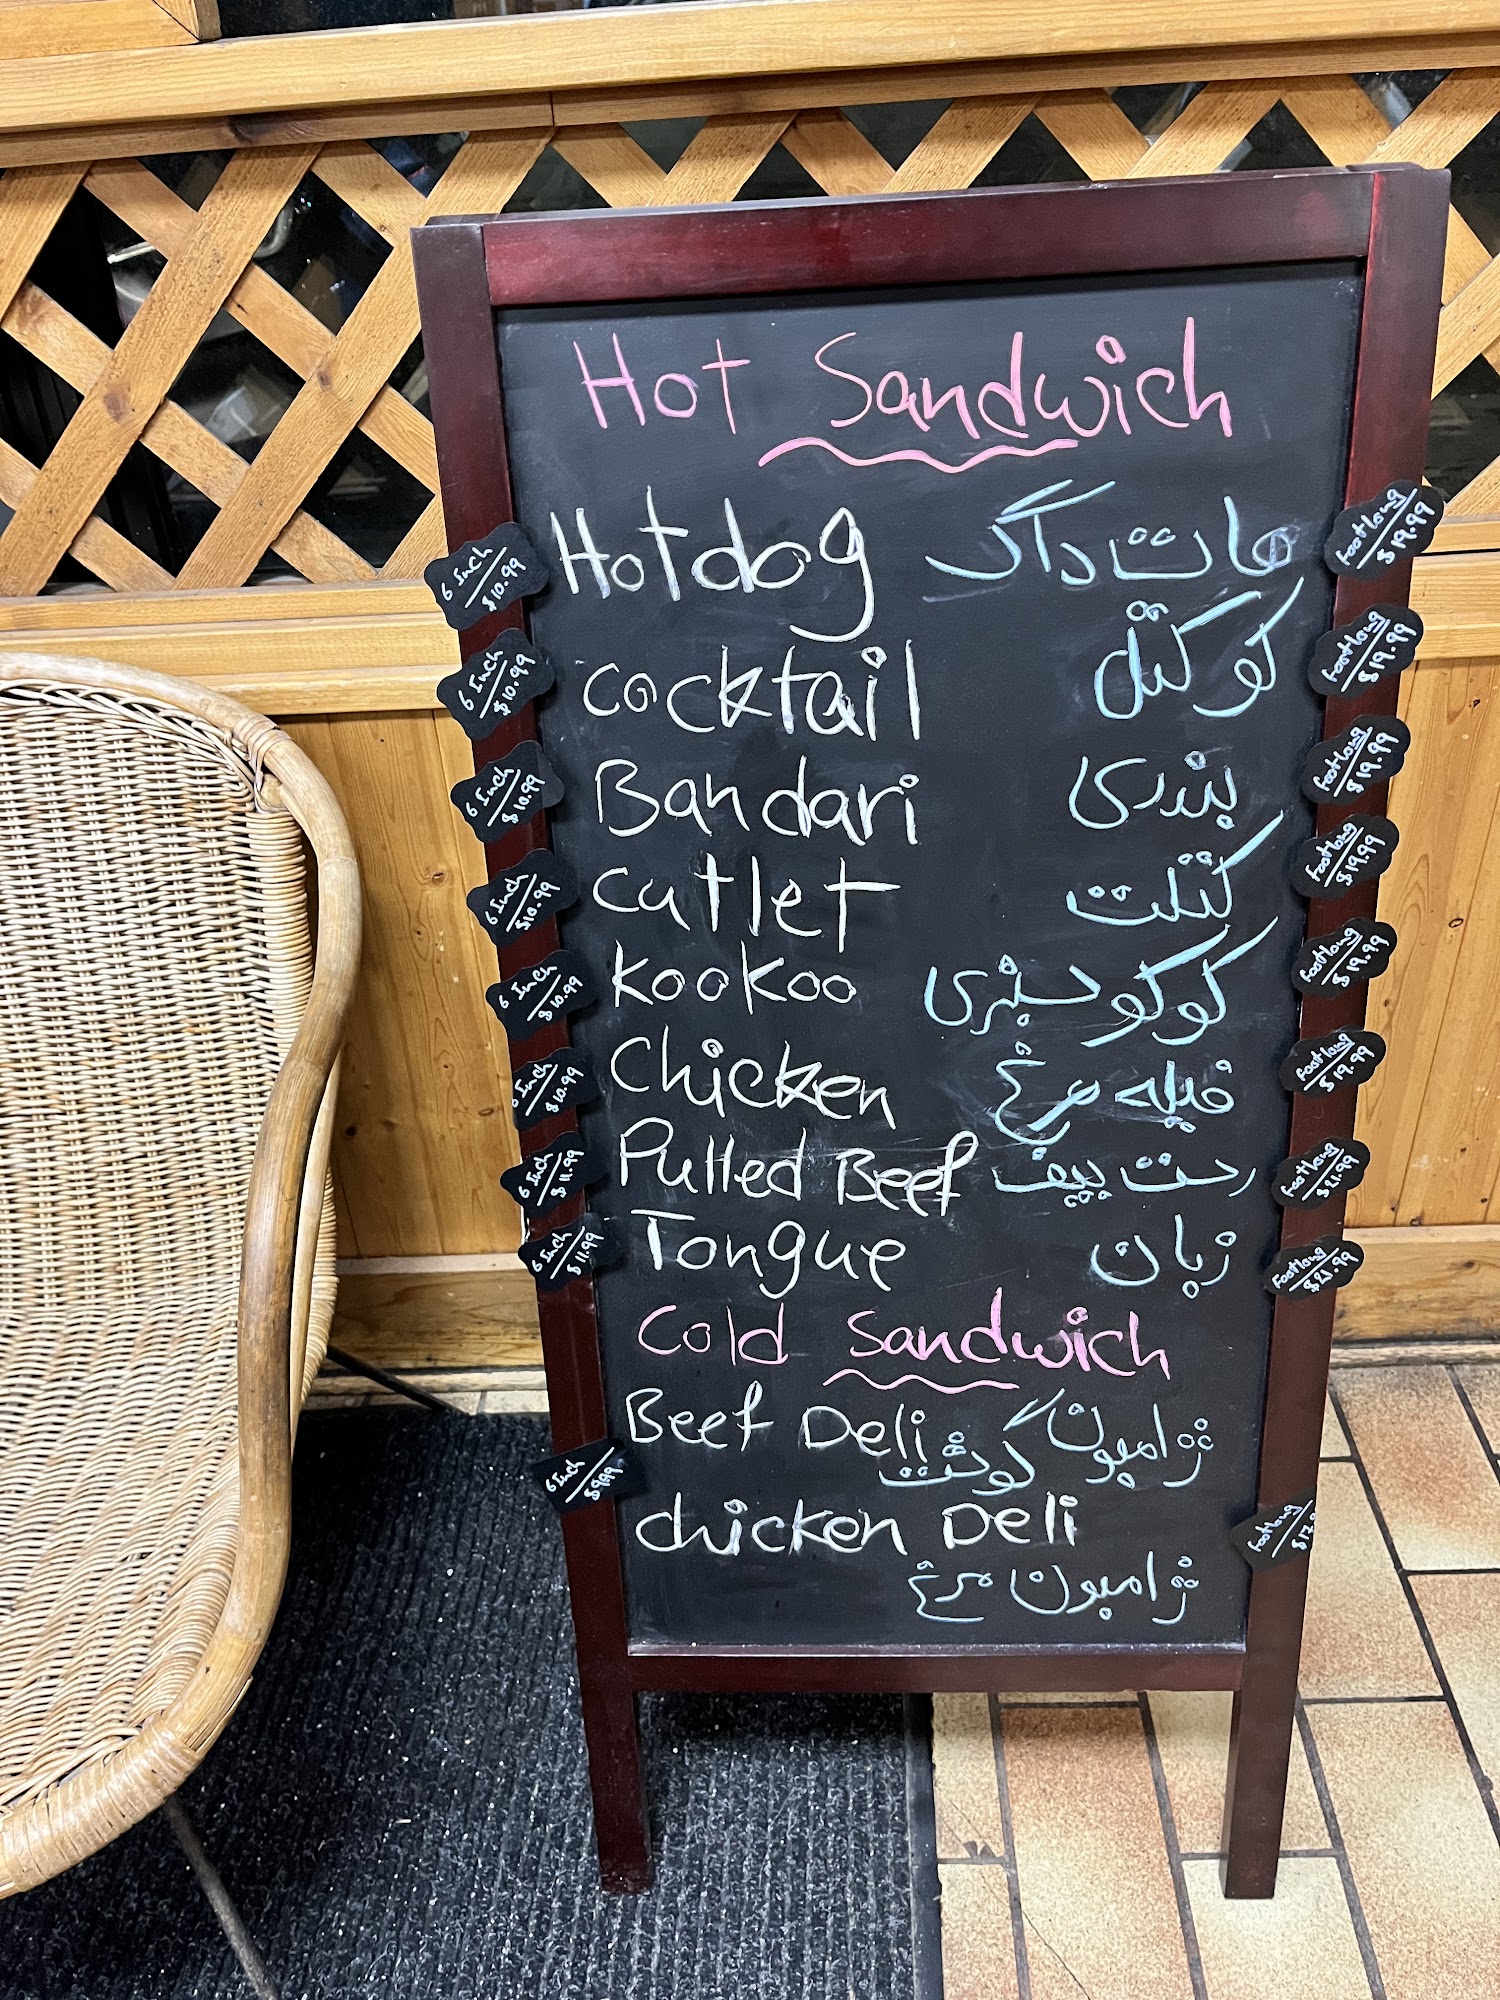 Hot Sandwich
6 Inch $10.99 Hotdog هات داگ Footlong $19.99
6 Inch $10.99 Cocktail کوکتل Footlong $19.99
6 Inch $10.99 Bandari بندری Footlong $19.99
6 Inch $10.99 Cutlet کتلت Footlong $19.99
6 Inch $10.99 Kookoo کوکو سبزی Footlong $19.99
6 Inch $10.99 Chicken فیله مرغ Footlong $19.99
6 Inch $11.99 Pulled Beef رست بیف Footlong $21.99
6 Inch $11.99 Tongue زبان Footlong $21.99
Cold Sandwich
Beef Deli ژامبون گوشت
6 Inch $9.99 Footlong
chicken Deli
ژامبون مرغ